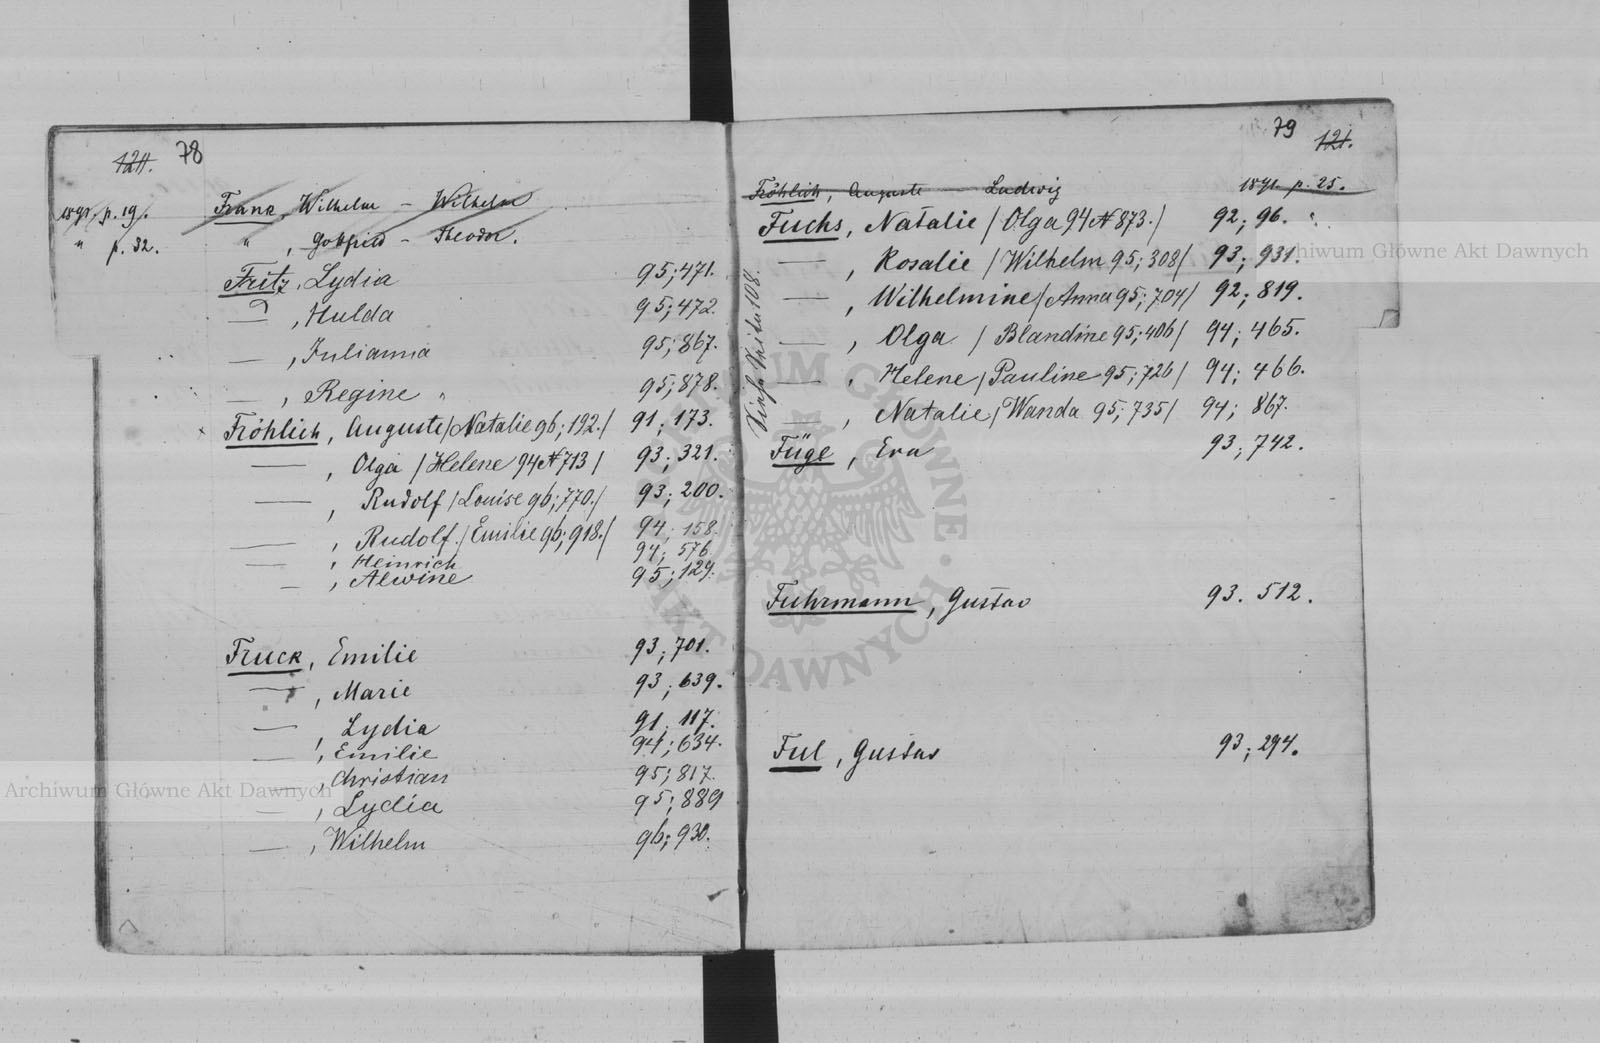 121. 78
1891, p. 19. Frank, Wilhelm - Wilhelm
" p. 32. " , Gottfried - Theodor.
Fritz, Lydia 95; 471.
— , Hulda 95; 472.
— , Julianna 95; 867.
— , Regine 95; 878.
Fröhlich, Auguste /Natalie 96; 192./ 91; 173.
— , Olga /Helene 94 № 713/ 93; 321.
— , Rudolf /Louise 96; 770./ 93; 200.
— , Rudolf. /Emilie 96; 918./ 94; 158.
— , Heinrich 94; 576.
— , Alwine 95; 129.
Fruck, Emilie 93; 701.
— , Marie 93; 639.
— , Lydia 91; 117.
— , Emilie 94; 634.
— , Christian 95; 817.
— , Lydia 95; 889
— , Wilhelm 96; 930.
79 121.
Fröhlich, Auguste — Ludwig 1891. p. 25.
Fuchs, Natalie /Olga 94 № 873./ 92; 96.
— , Rosalie /Wilhelm 95; 308/ 93; 931.
— , Wilhelmine /Anna 95; 704/ 92; 819.
— , Olga /Blandine 95; 406/ 94; 465.
— , Helene /Pauline 95; 726/ 94; 466.
— , Natalie /Wanda 95; 735/ 94; 867.
Füge, Eva 93; 742.
Fuhrmann, Gustav 93. 512.
Ful, Gustav 93; 294.
108.
Archiwum Główne Akt Dawnych
Archiwum Główne Akt Dawnych
ARCHIWUM GŁÓWNE AKT DAWNYCH